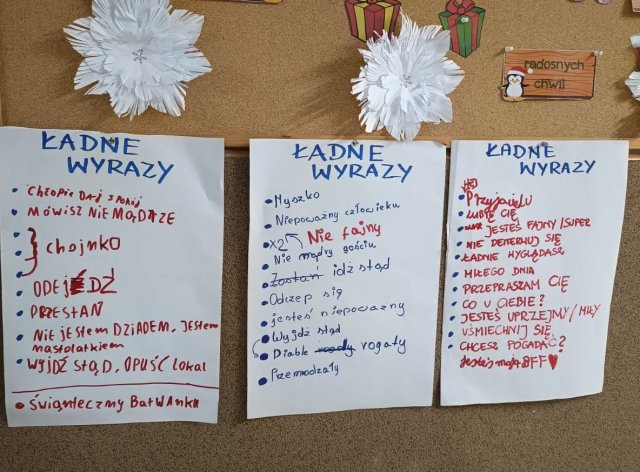 radosnych
chwil
ŁADNE
WYRAZY
CHŁOPIE DAJ SPOKÓJ
MÓWISZ NIE MĄDRZE
Chojnko
ODEJDŹ
PRZESTAŃ
NIE JESTEM DZIADEM, JESTEM
nastolatkiem
WYJDŹ STĄD, OPUŚĆ lokal
ŚWIĄTECZNY BałWANKU
ŁADNE
WYRAZY
Myszko
Niepoważny człowieku
X2 Nie fajny
Nie mądry gościu
Zostań idź stąd
Odczep się
jesteś niepoważny
Wyjdź stąd
Diable rogaty
Przemądrzały
ŁADNE
WYRAZY
HEJ
Przyjacielu
LUBIĘ CIĘ
JESTEŚ FAJNY/SUPER
NIE DENERWUJ SIĘ
ŁADNIE WYGLĄDASZ
MIŁEGO DNIA
PRZEPRASZAM CIĘ
CO U CIEBIE?
JESTEŚ UPRZEJMY/MIŁY
UŚMIECHNIJ SIĘ
CHCESZ POGADAĆ?
Jesteś moją BFF